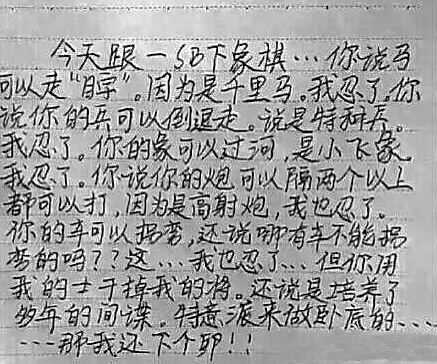 今天跟一SB下象棋…你说马
可以走“目字”。因为是千里马。我忍了。你
说你的兵可以倒退走。说是特种兵。
我忍了。你的象可以过河，是小飞象。
我忍了。你说你的炮可以隔两个以上
都可以打，因为是高射炮，我也忍了。
你的车可以拐弯，还说哪有车不能拐
弯的吗？？这…我也忍了…但你用
我的士干掉我的将。还说是培养了
多年的间谍。特意派来做卧底的…
…那我还下个卵！！